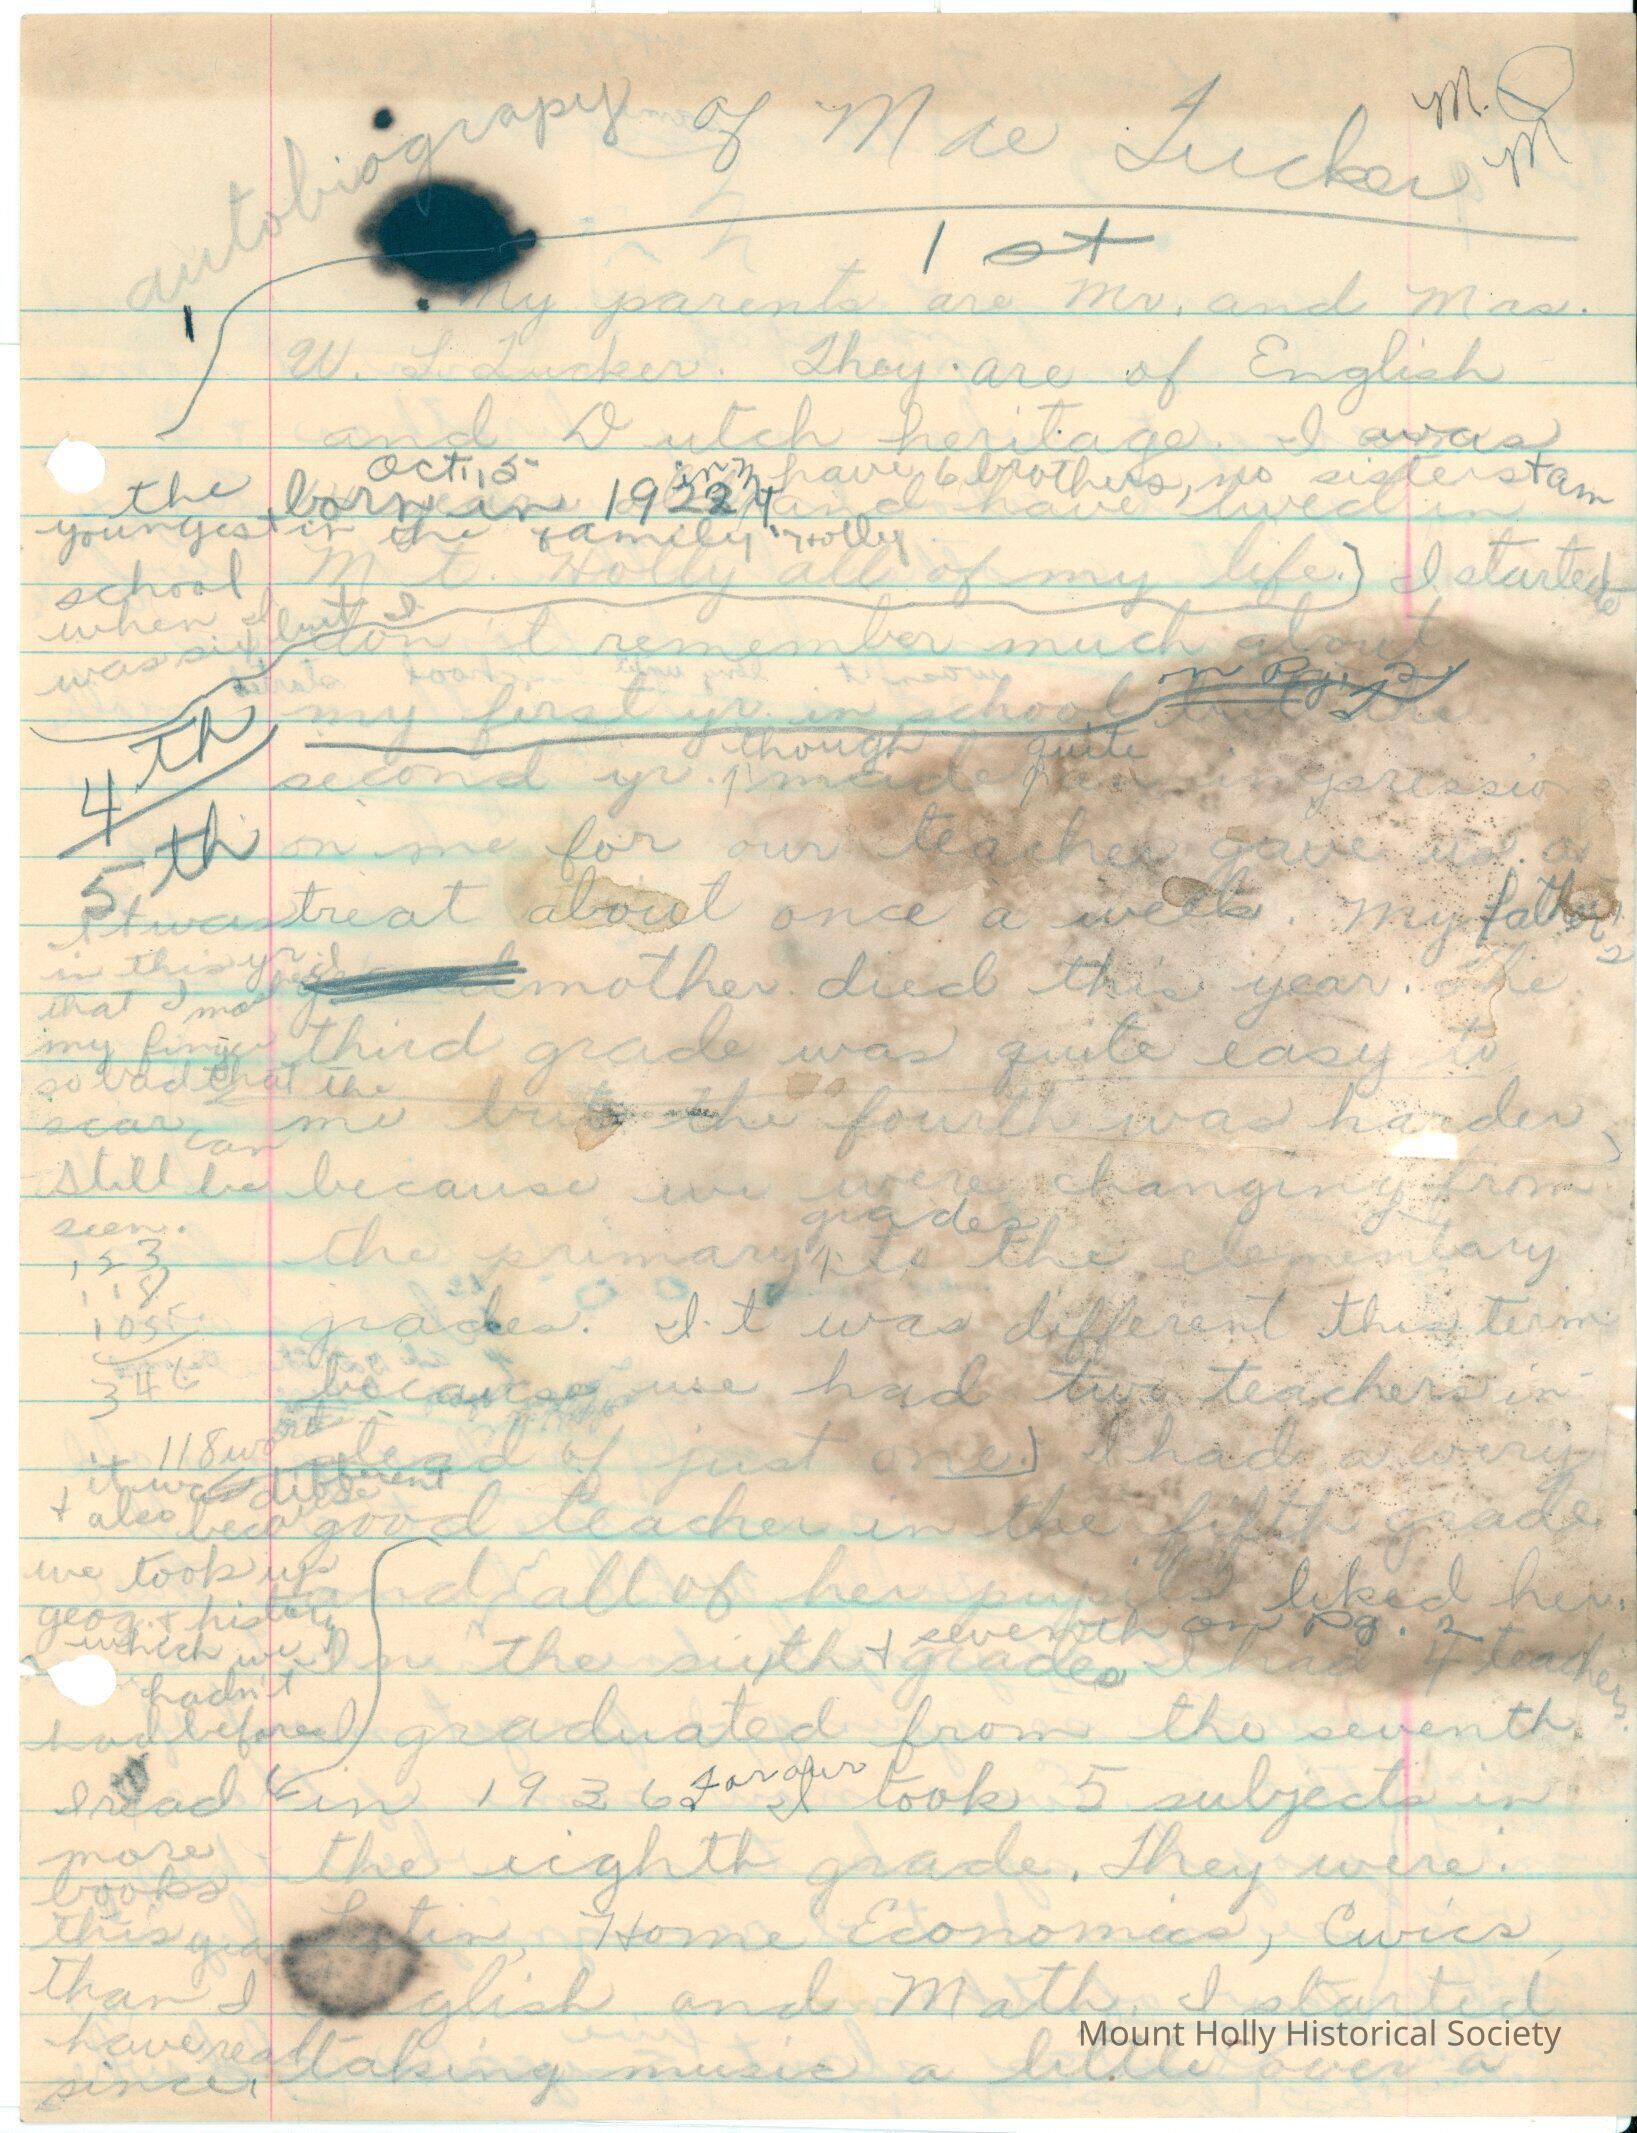 autobiograpy of Mae Tucker
M.
M
1 st
1
My parents are Mr. and Mrs.
W. L. Tucker. They are of English
and Dutch heritage. I was
Oct. 15 have 6 brothers, no sisters + am
the born in 1922 and have lived in
youngest in the family. Holly
Mt. Holly all of my life.) I started
school
when I but I
was six don't remember much about
on Pg. 2
my first yr. in school but the
4 th
though quite
second yr. made an impression
5 th
on me for our teacher gave us a
treat about once a week. My father's
It was
in this yr.
mother died this year. The
that I
my finger third grade was quite easy to
so bad that the
scar me but the fourth was harder,
can
still be because we were changing from
seen. grades
the primary to the elementary
153
118
105 grades. It was different this term
346 because we had two teachers in
118 words
stead of just one.) I had a very
it was different
+ also because good teacher in the fifth grade
we took up and all of her pupils liked her.
geog. + history seventh on Pg. 2
which we In the sixth + grades I had 4 teachers.
hadn't
had before I graduated from the seventh
I read in 1936. I took 5 subjects in
more the eighth grade. They were:
books
this year Latin, Home Economics, Civics,
than I English and Math. I started
have read taking music a little over a
since.
Mount Holly Historical Society